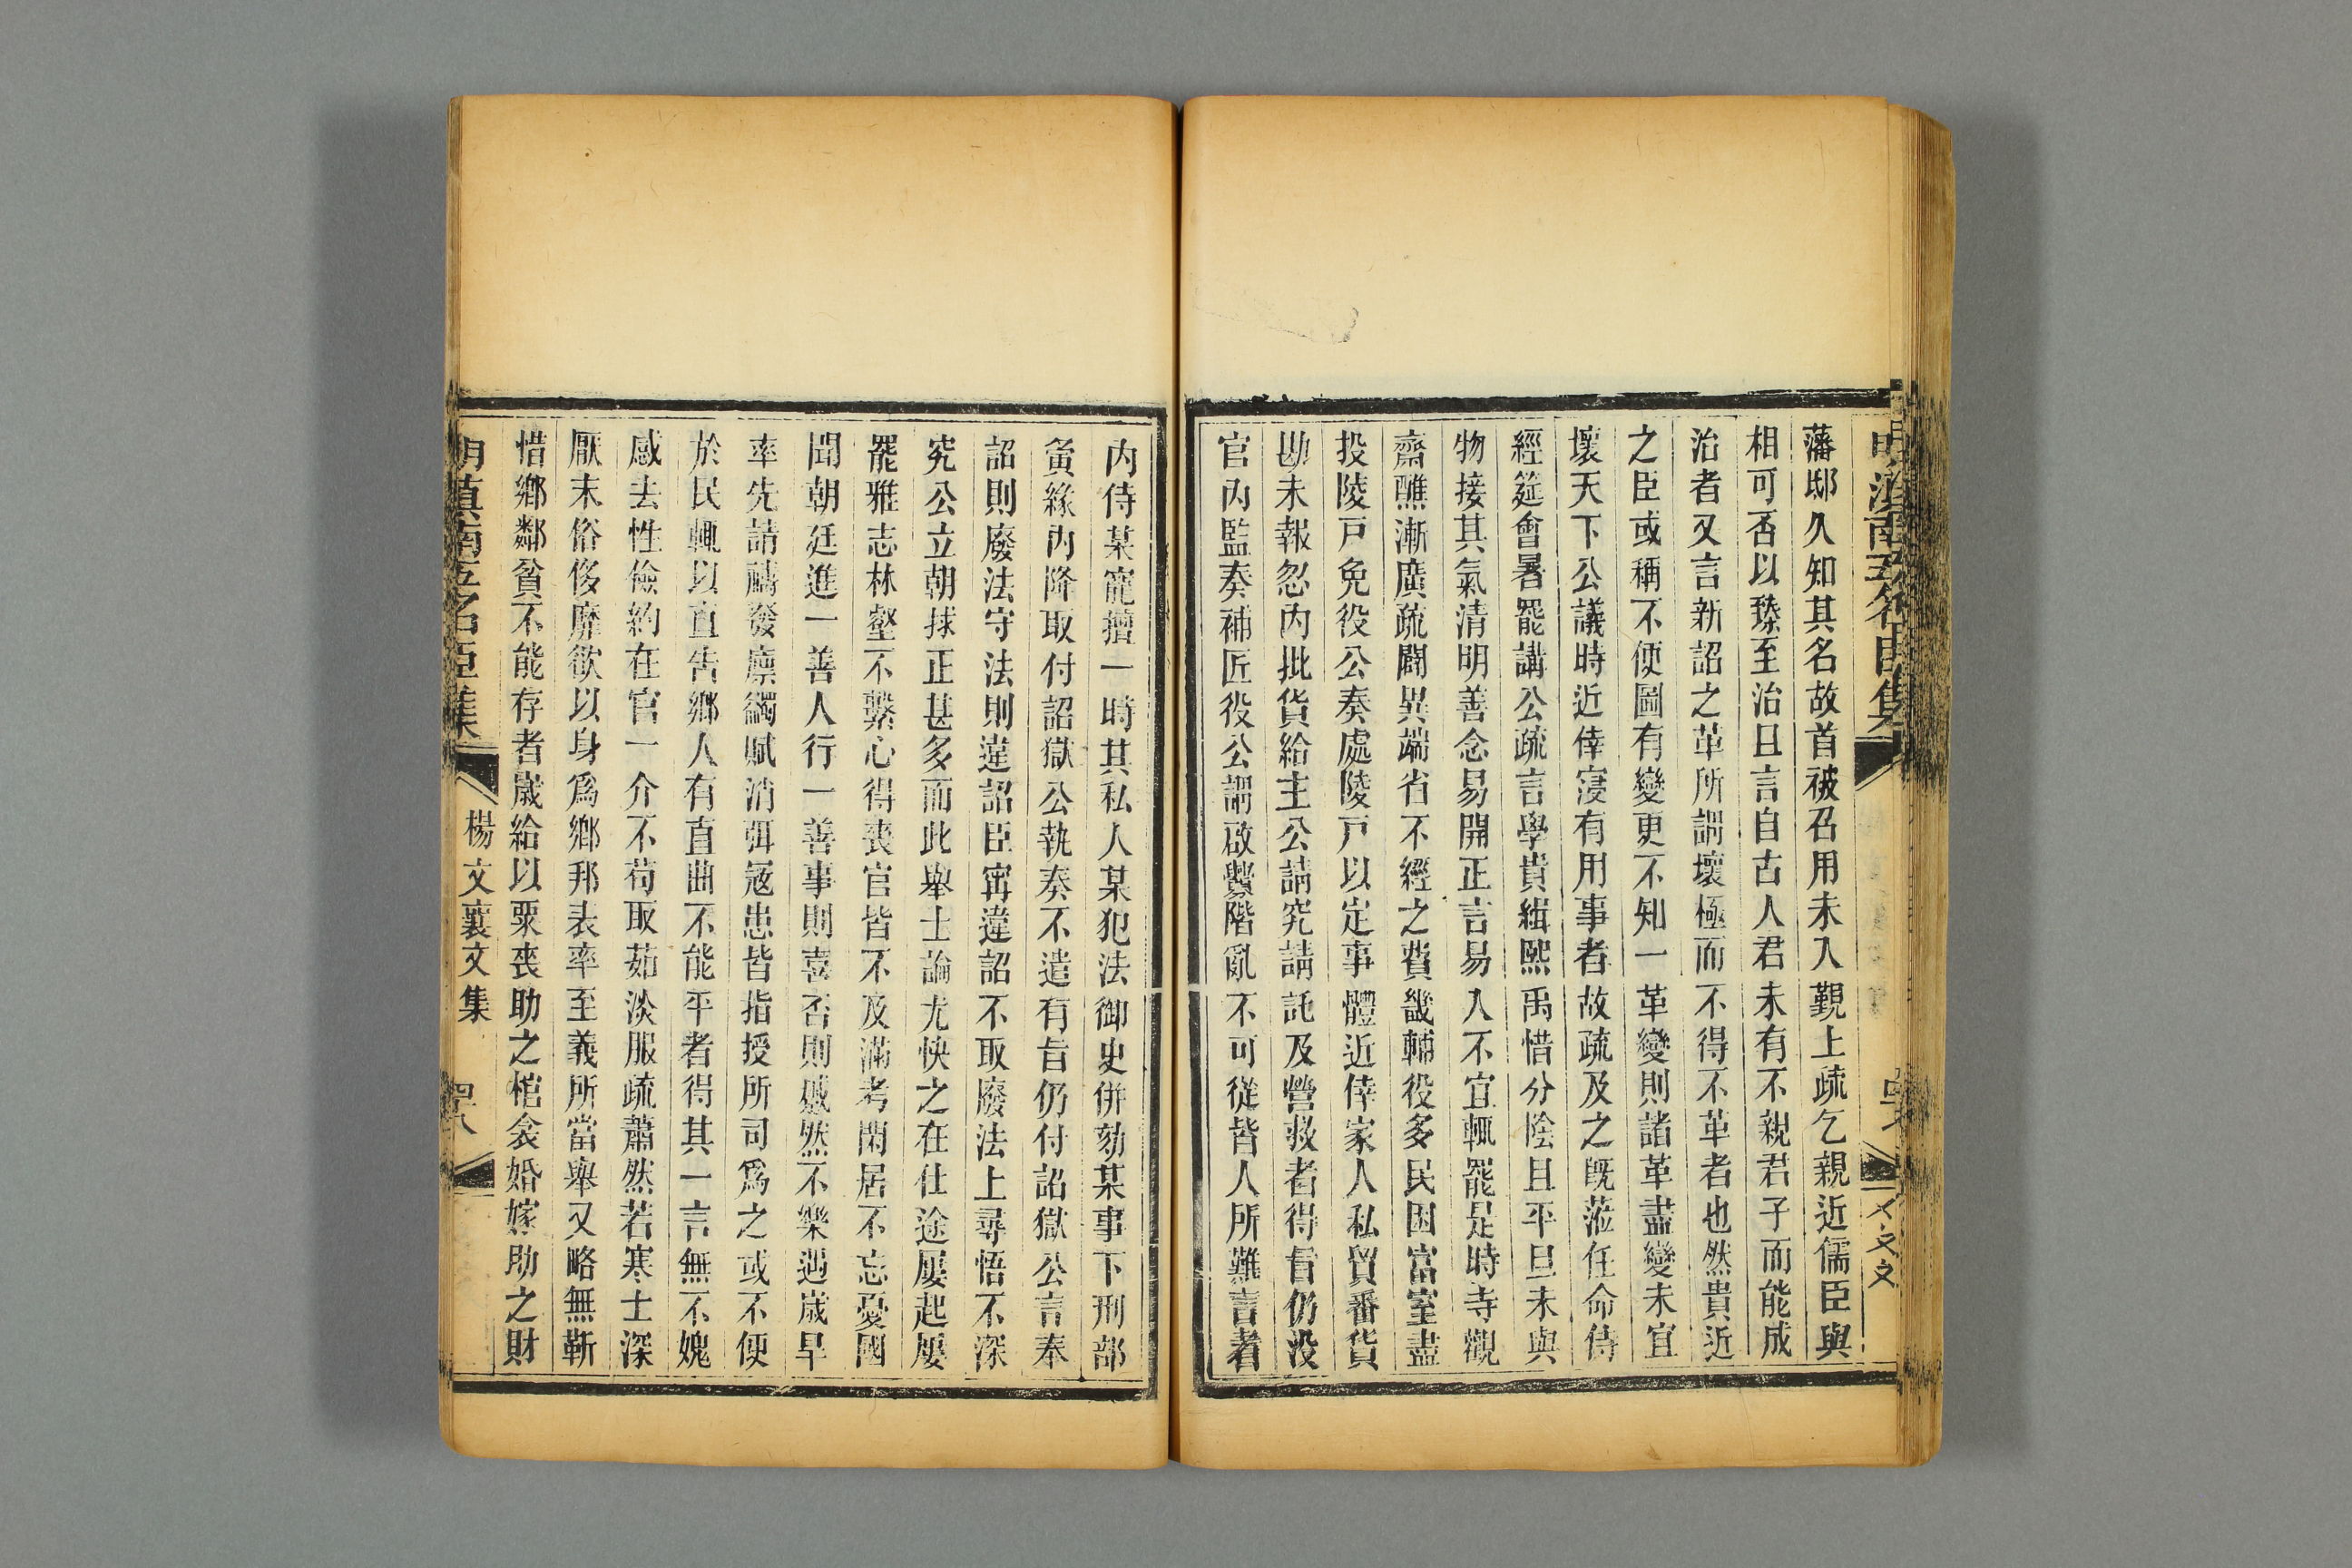 藩邸久知其名故首被召用未入覲上疏乞親近儒臣與
相可否以臻至治且言自古人君未有不親君子而能成
治者又言新詔之革所謂壞極而不得不革者也然貴近
之臣或稱不便圖有變更不知一革變則諸革盡變未宜
壞天下公議時近倖寖有用事者故疏及之既蒞任命侍
經筵會暑罷講公疏言學貴緝熙禹惜分陰且平旦未與
物接其氣清明善念易開正言易入不宜輒罷是時寺觀
齋醮漸廣疏闢異端省不經之費畿輔役多民困富室盡
投陵戸免役公奏處陵戸以定事體近倖家人私貿番貨
勘未報忽內批貨給主公請究請託及營救者得旨仍没
官內監奏補匠役公謂啟釁階亂不可從皆人所難言者
內侍某寵擅一時其私人某犯法御史併劾某事下刑部
夤緣內降取付詔獄公執奏不遣有旨仍付詔獄公言奉
詔則廢法守法則違詔臣甯違詔不取廢法上尋悟不深
究公立朝捄正甚多而此舉士論尤快之在仕途屢起屢
罷雅志林壑不繫心得喪官皆不及滿考閑居不忘憂國
聞朝廷進一善人行一善事則喜否則慼然不樂遇歲旱
率先請禱發廩蠲賦消弭寇患皆指授所司爲之或不便
於民輒以直告鄉人有直曲不能平者得其一言無不媿
感去性儉約在官一介不苟取茹淡服疏蕭然若寒士深
厭末俗侈靡欲以身爲鄉邦表率至義所當舉又略無靳
惜鄉鄰貧不能存者歲給以粟喪助之棺衾婚嫁助之財
明滇南五名臣集 楊文襄文集 四八